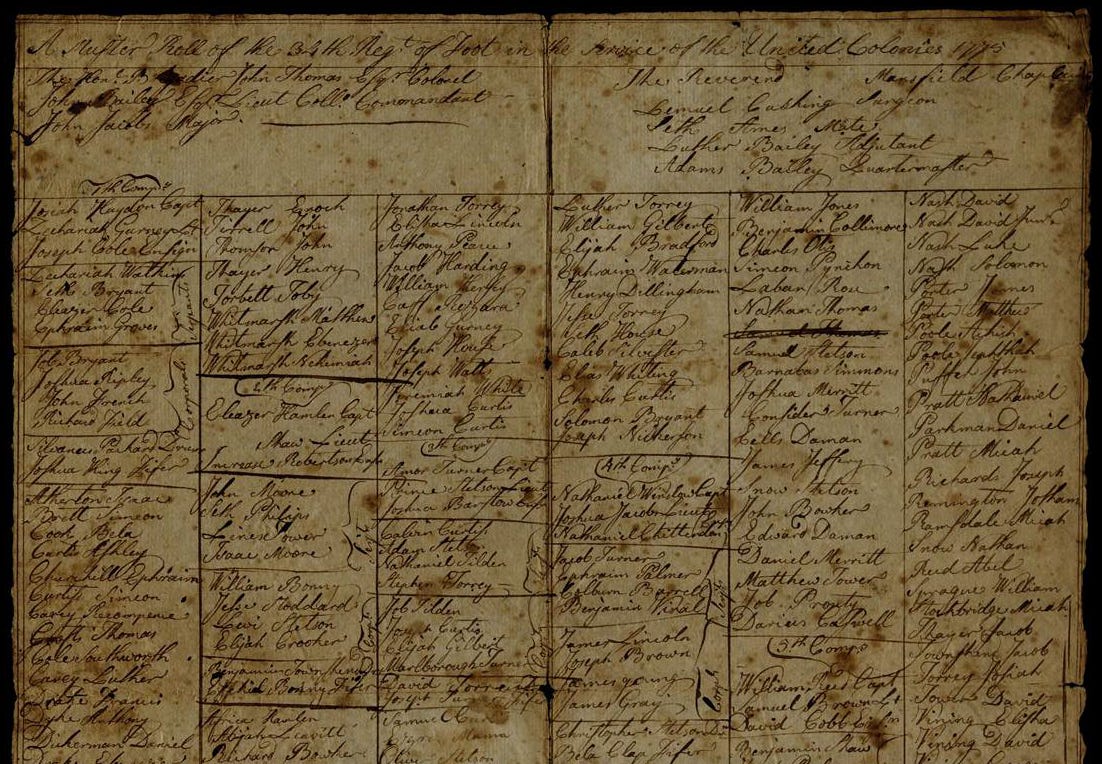 A Muster Roll of the 34th Regt of Foot in the Service of the United Colonies 1775
The Honl. John Thomas Esqr Colonel
John Bailey Esqr Lieut Coll. Commandant
John Jacobs Major
The Reverend Mansfield Chaplain
Lemuel Cushing Surgeon
Seth Ames Mate
Luther Bailey Adjutant
Adams Bailey Quartermaster
1st Compy
Josiah Haydon Capt
Zechariah Gurney Lt
Joseph Cole Ensign
Zechariah Watkins
Seth Bryant
Eleazer Cole
Ephraim Groves
Serjeants
Job Bryant
Joshua Ripley
John French
Richard Field
Corporals
Silvanus Packard Drumr
Joshua King Fifer
Atherton Isaac
Brett Simeon
Cook Bela
Curtis Ashley
Churchill Ephraim
Curtis Simeon
Carey Recompence
Croft Thomas
Cole Southworth
Carey Luther
Drake Francis
Dyke Anthony
Dickerman Daniel
Thayer Enoch
Tirrell John
Thomson John
Thayer Henry
Torbett Toby
Whitmarsh Matthew
Whitmarsh Ebenezer
Whitmarsh Nehemiah
2d Compy
Eleazer Hamlen Capt
Shaw Lieut
Increase Robertson Ensn
John Moore
Seth Philips
Tower
Isaac Moore
Sejt
William Bonny
Jese Stoddard
Levi Stetson
Elijah Crooker
Corpl
Benjamin Town
Ezekiel Bonny Fifer
Africa Hamlen
Abijah Leavitt
Richard Bowker
Jonathan Torrey
Elisha Lincoln
Anthony Pearce
Jacob Harding
William Hersey
Caff
Eliab Gurney
Joseph House
Joseph Watts
Jeremiah White
Joshua Curtis
Simeon Curtis
3th Compy
Amos Turner Capt
Prince Stetson Lieut
Joshua Barstow Ensn
Calvin Curtis
Adam Stetson
Nathaniel Tilden
Stephen Torrey
Sejt
Job Tilden
Joseph Curtis
Elijah Gilbert
Marlborough Turner
Corpl
David Torrey
Joseph Fifer
Samuel
Mama
Oliver Stetson
Luther Torrey
William Gilbert
Elijah Bradford
Ephraim Waterman
Henry Dillingham
Jese Torrey
Seth House
Caleb Silvester
Elias Whiting
Charles Curtis
Solomon Bryant
Joseph Nickerson
4th Compy
Nathaniel Winslow Capt
Joshua Jacobs Lieut
Nathaniel Chittenden
Jacob Turner
Ephraim Palmer
Colburn Barrell
Benjamin Vinal
Sejt
James Lincoln
Joseph Brown
James Young
James Gray
Corpl
Christopher Stetson Dr
Bela Clap Fifer
William Jones
Benjamin Collimore
Charles Otis
Simeon Pynchon
Laban Rou
Nathan Thomas
Samuel Stetson
Barnabas Simmons
Joshua Merritt
Consider Turner
Eells Daman
James Jeffery
Snow Stetson
John Bowker
Edward Daman
Daniel Merritt
Matthew Tower
Job Prouty
Darius Calwell
5th Compy
William Reed Capt
Samuel Brown Lt
David Cobb Ensn
Benjamin Shaw
Nash David
Nash David Junr
Nash Luke
Nash Solomon
Porter James
Porter Matthew
Poole Achish
Poole Jephthah
Puffer John
Pratt Nathaniel
Parkman Daniel
Pratt Micah
Richards Joseph
Remington Jotham
Ramsdale Micah
Snow Nathan
Reed Abel
Sprague William
Stockbridge Micah
Thayer Jacob
Townshend Jacob
Torrey Josiah
Tower David
Vining Elisha
Vining David